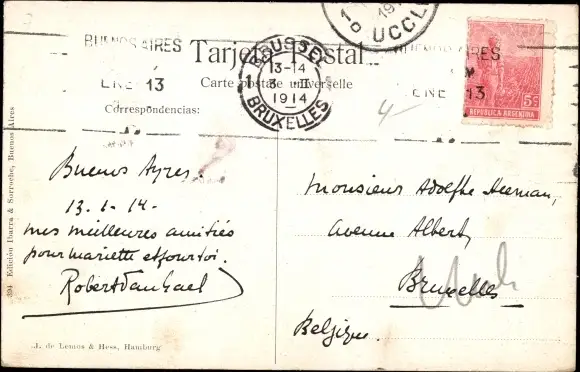 BUENOS AIRES
ENE 13
Tarjeta Postal
Carte postale universelle
Correspondencias:
BRUXELLES
13-14
3 II
1914
BRUXELLES
UCCLE
AIRES
ENE 13
5c
REPUBLICA ARGENTINA
4
Buenos Ayres.
13.1.14.
mes meilleures amitiés
pour mariette et pour toi.
Monsieur Adolphe
Avenue Albert,
Bruxelles
Belgique.
394 Edición Ibarra & Sorroche, Buenos Aires
J. de Lemos & Hess, Hamburg